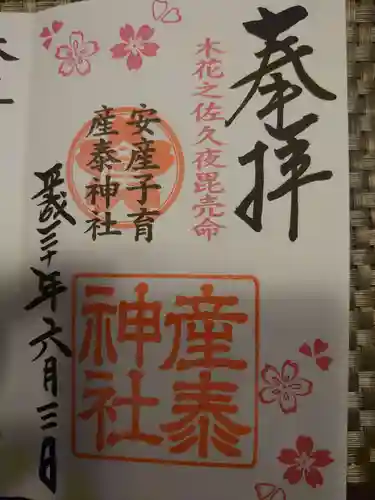 奉拝
木花之佐久夜毘売命
安産子育
産泰神社
産泰
神社
平成三十年六月三日